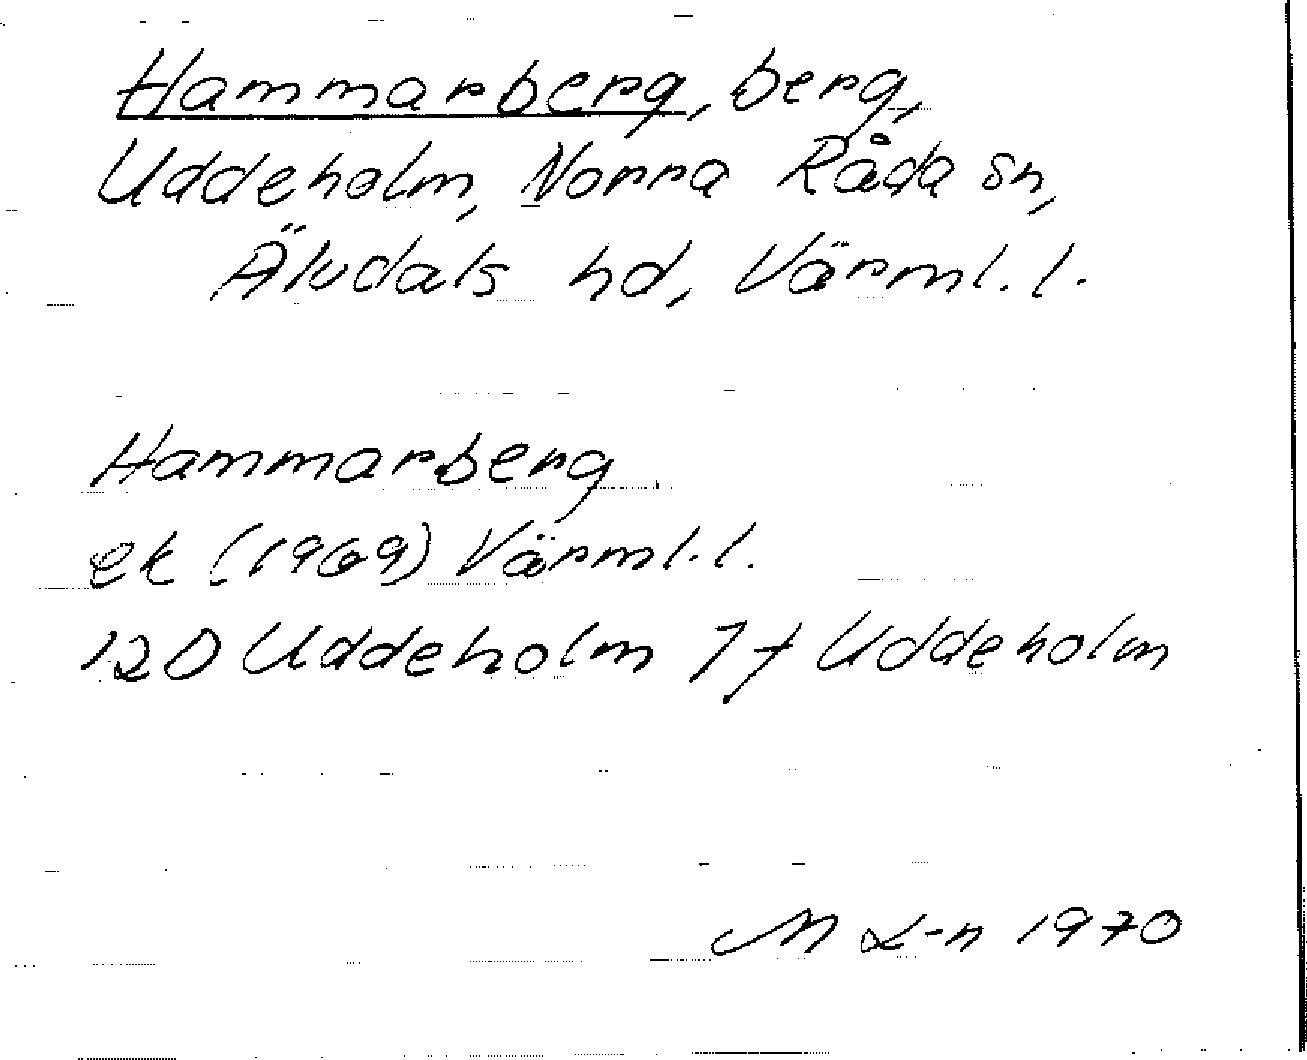 Hammarberg, berg,
Uddeholm, Norra Råda sn,
Älvdals hd, Värml. l.
Hammarberg
ek (1969) Värml. l.
12D Uddeholm 7f Uddeholm
M L-n 1970